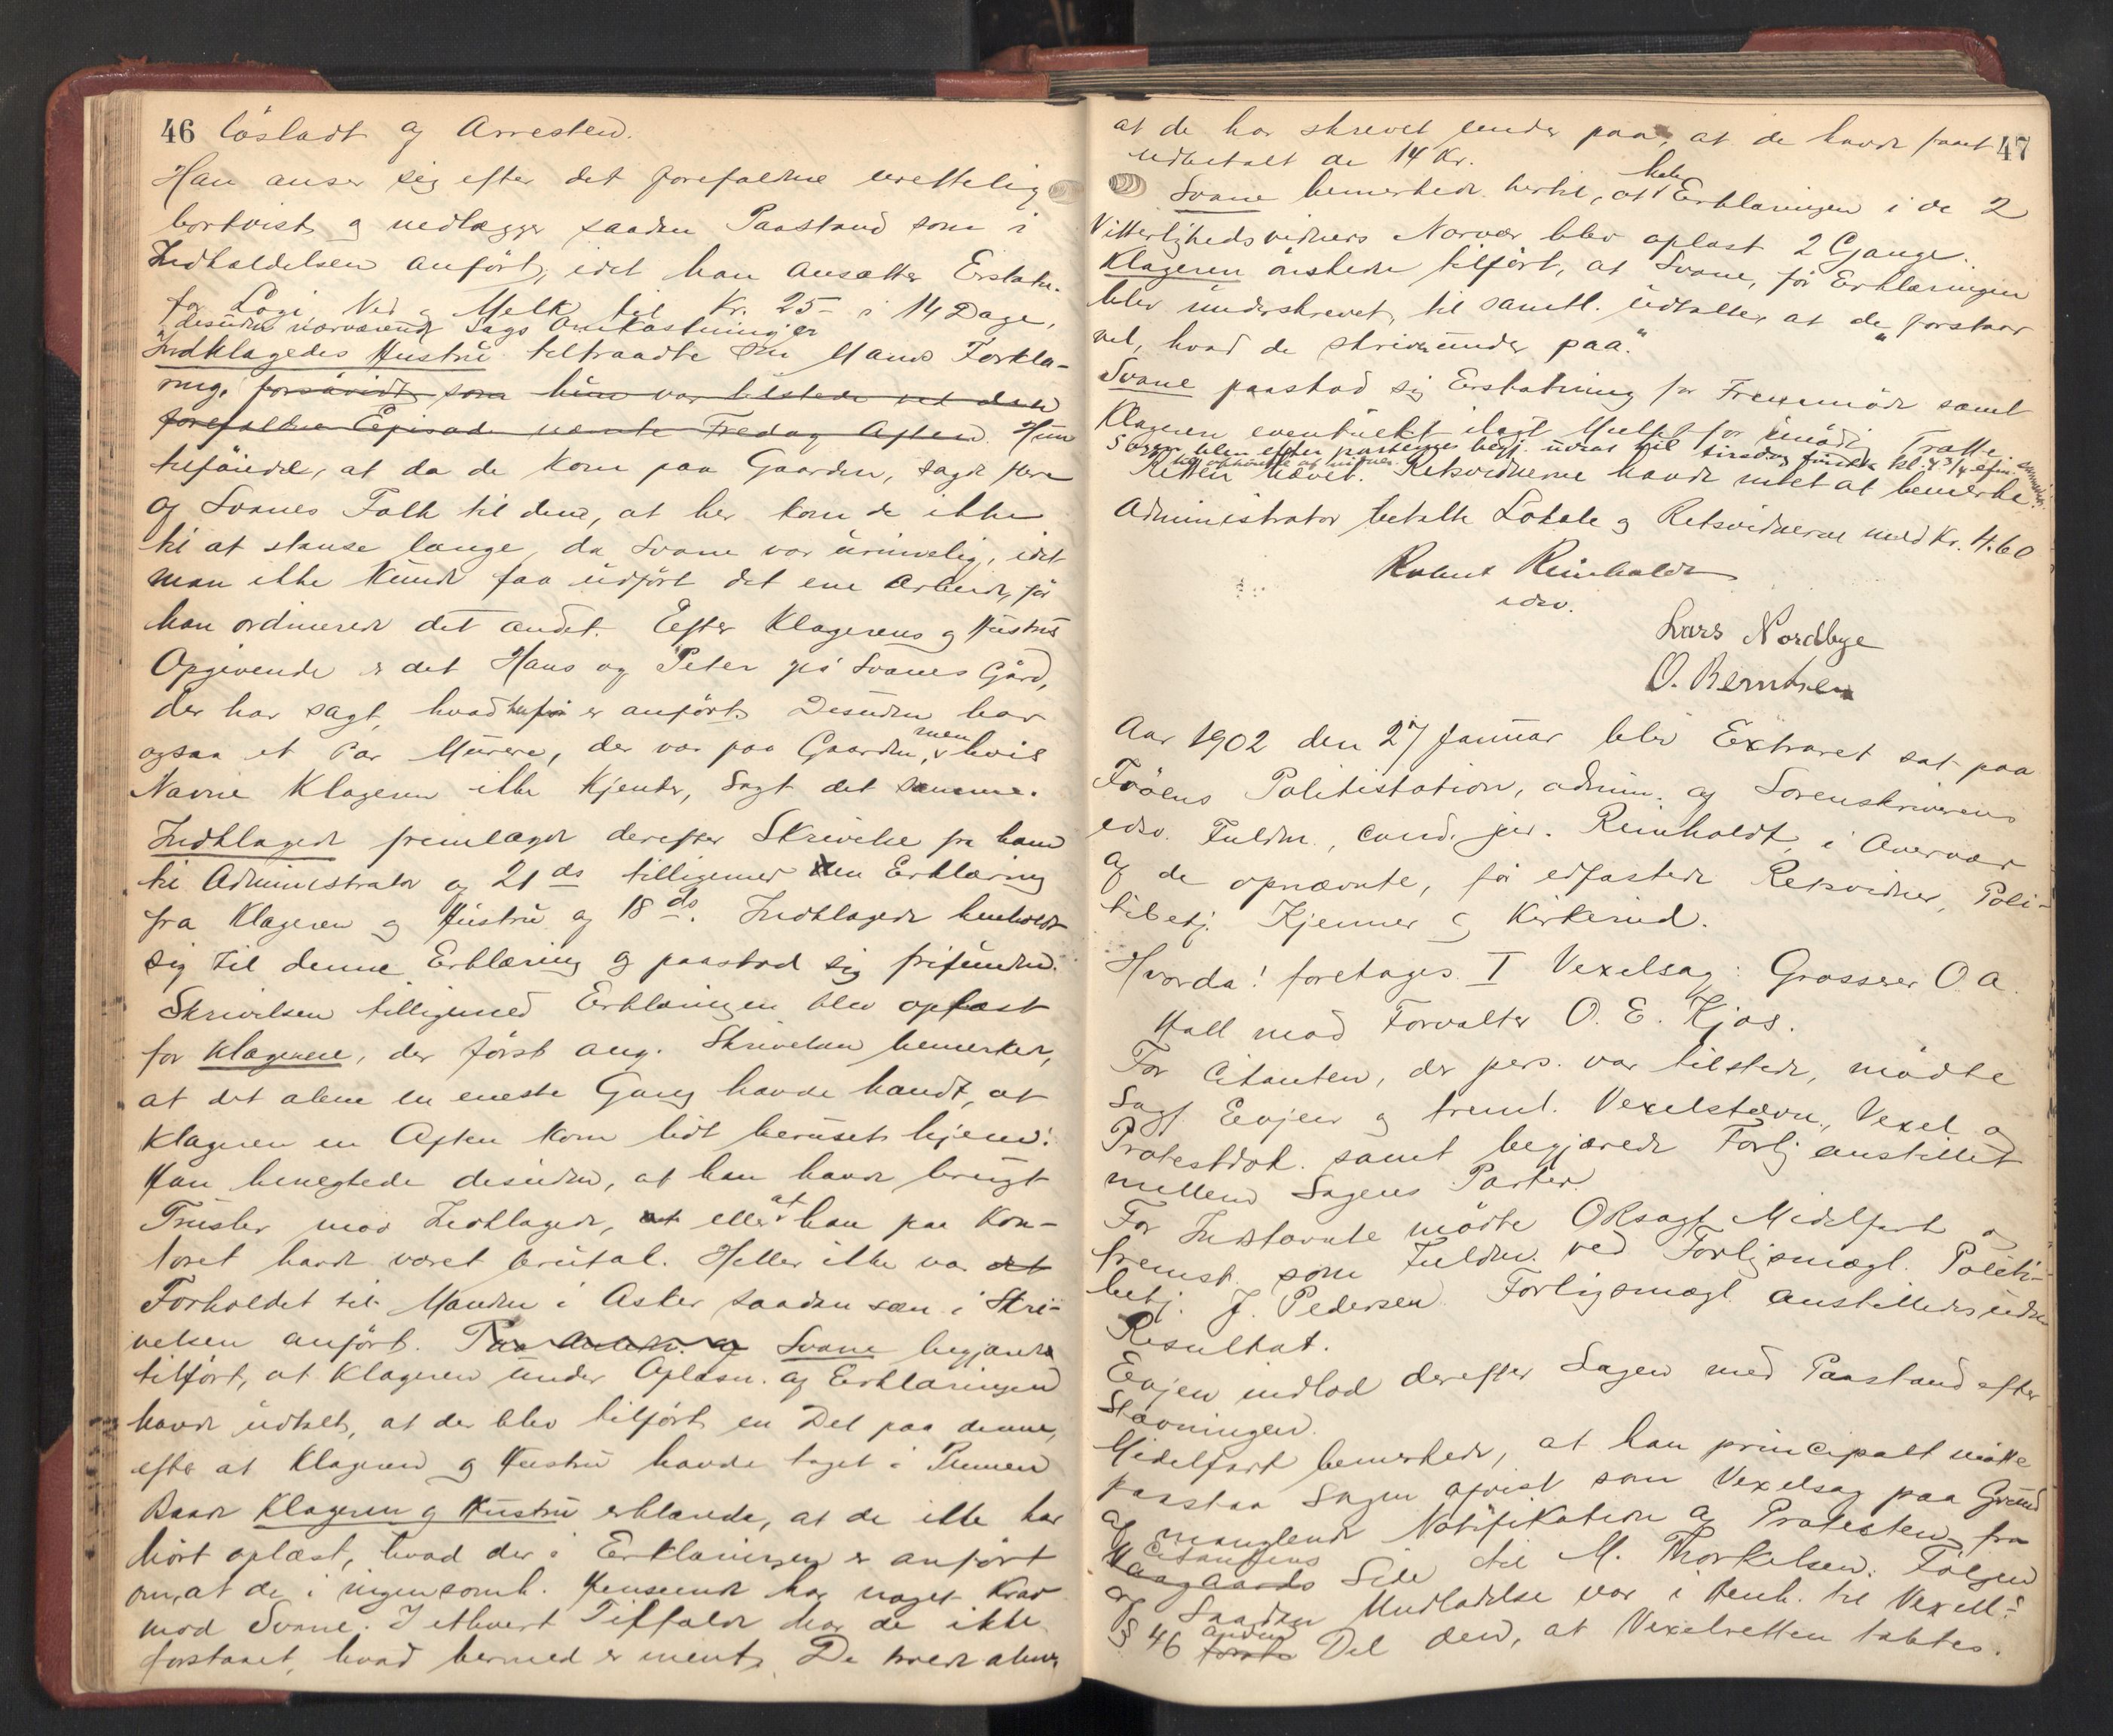 46 lösladt af Arresten.
Han anser sig efter det forefaldne urettelig
bortvist og nedlægger saadan Paastand som i
Indkaldelsen anført, idet han ansætter Erstatn.
for Logi, Ved og Melk til Kr. 25- i 14 Dage,
desuden nærværende Sags Omkostninger
Indklagedes Hustru tiltraadte sin Mands Forkla-
ring, forsaavidt som hun var tilstede ved den
forefaldne Episode nævnte Fredag Aften. Hun
tilføiede, at da de kom paa Gaarden, sagde flere
af Svanes Folk til dem, at her kom de ikke
til at stanse længe, da Svane var urimelig, idet
man ikke kunde faa udført det ene Arbeide, før
han ordinerede det andet. Efter Klagerens og Hustrus
Opgivende er det Hans og Peter på Svanes Gård,
der har sagt, hvad her er anført. Desuden har
ogsaa et Par Murere, der var paa Gaarden, men hvis
Navne Klageren ikke kjender, sagt det samme.
Indklagede fremlagde derefter Skrivelse fra ham
til Administrator af 21 ds tilligemed en Erklæring
fra Klageren og Hustru af 18 ds. Indklagede henholdt
sig til denne Erklæring og paastod sig frifunden.
Skrivelsen tilligemed Erklæringen blev oplæst
for Klageren, der først ang. Skrivelsen bemerker,
at det alene en eneste Gang havde hændt, at
Klageren en Aften kom lidt beruset hjem.
Han benegtede desuden, at han havde brugt
Trusler mod Indklagede, at eller at han paa Kon-
toret havde været brutal. Heller ikke var det
Forholdet til Manden i Asker saadan som i Skri-
velsen anført. Svane begjærede
tilført, at Klageren under Oplæsn. af Erklæringen
havde udtalt, at der blev tilført en Del paa denne,
efter at Klageren og Hustru havde taget i Pennen
Baade Klageren og Hustru erklærede, at de ikke har
hørt oplæst, hvad der i Erklæringen er anført
om, at de i ingensomh. Henseende har noget Krav
mod Svane. I ethvert Tilfælde har de ikke
forstaaet, hvad hermed er ment. De troede alene
at de har skrevet under paa, at de havde faaet 47
udbetalt de 14 Kr.
Svane bemerkede hertil, at hele Erklæringen i de 2
Vitterlighedsvidners Nærvær blev oplæst 2 Gange.
Klageren ønskede tilført, at Svane, før Erklæringen
blev underskrevet, til samtl. udtalte, at de "forstaar
vel, hvad de skriver under paa."
Svane paastod sig Erstatning for Fremmøde samt
Klageren eventuelt ilagt Mulkt for unødig Trætte.
Sagen blev efter parternes begj. udsat til tirsdag kl. 4 3/4 efm.
Retten hævet. Retsvidnerne havde intet at bemerke
Administrator betalte Lokale og Retsvidnerne med Kr. 4.60
Robert Reinholdt
edsv.
Lars Nordbye
O. Berntsen
Aar 1902 den 27 Januar blev Extraret sat paa
Politistation, admin. af Sorenskriverens
edsv. Fuldm., cand. jur. Reinholdt, i Overvær
af de opnævnte, før edfæstede Retsvidner, Poli-
tibetj. Kjenner og Kirkerud.
Hvorda! foretages I Vexelsag: Grosserer O. A.
Hall mod Forvalter O. E. Kjos.
For Citanten, der pers. var tilstede, mødte
Sagf. Evjen og freml. Vexelstævn, Vexel og
Protestdok. samt begjærede Forlig anstillet
mellem Sagens Parter.
For Indstævnte mødte ORsagf. Midelfart og
fremst. som Fuldm. ved Forligsmægl. Politi-
betj. J. Pedersen. Forligsmægl. anstilledes uden
Resultat.
Evjen indlod derefter Sagen med Paastand efter
Stævningen.
Midelfart bemerkede, at han principalt maatte
paastaa Sagen afvist som Vexelsag paa Grund
af manglende Notifikation af Protesten fra
Citantens
Haagaards Side til M. Thorkelsen. Følgen
af Saadan Undladelse var i Henh. til Vexell.s
§ 46 første anden Del den, at Vexelretten tabtes.